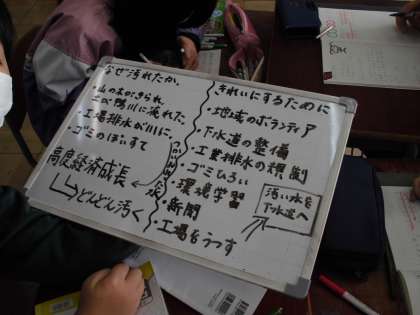 なぜ汚れたか。
・山の木がきられ
土が鴨川に流れた
・工場排水が川に。
・ゴミのぽいすて
高度経済成長
どんどん汚く
きれいにするために
・地域のボランティア
・下水道の整備
・工業排水の規制
・ゴミひろい
・環境学習
・新聞
・工場をうつす
汚い水を
下水道へ